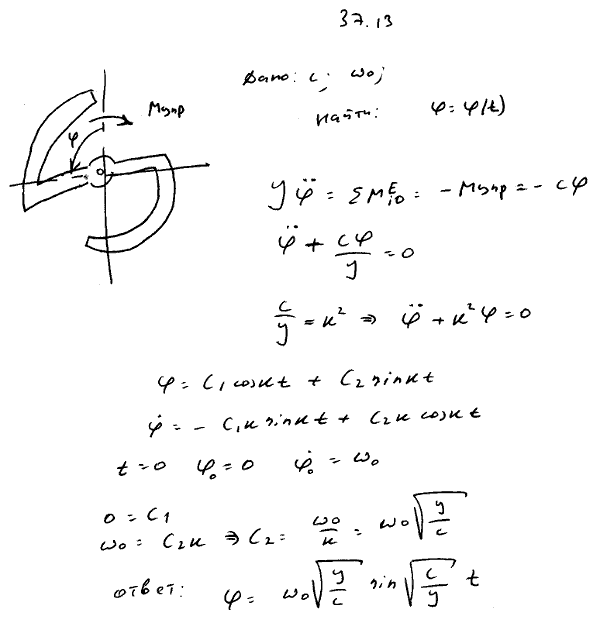 37.13
Дано: c; ω₀;
Найти: φ = φ(t)
Mупр
φ
o
Jφ̈ = ΣMᴱᵢₒ = -Mупр = -cφ
φ̈ + cφ/J = 0
c/J = к² ⇒ φ̈ + к²φ = 0
φ = C₁ cos кt + C₂ sin кt
φ̇ = - C₁к sin кt + C₂к cos кt
t = 0 φ₀ = 0 φ̇₀ = ω₀
0 = C₁
ω₀ = C₂к ⇒ C₂ = ω₀/к = ω₀√(J/c)
ответ: φ = ω₀√(J/c) sin √(c/J) t